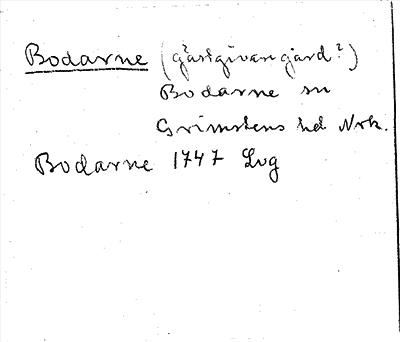 Bodarne (gästgivaregård?)
Bodarne sn
Grimstens hd Nrk.
Bodarne 1747 Lvg